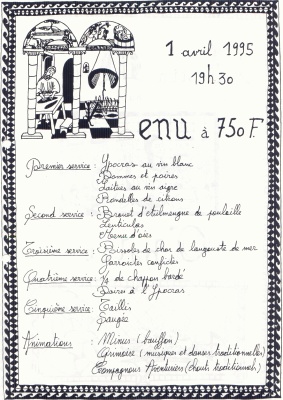 1 avril 1995
19h30
Menu à 750F
Premier service: Ypocras au vin blanc
Pommes et poires
Laitues au vin aigre
Rondelles de citrons
Second service: Brouet d'étuimeuque de poulaille
Lenticulas
Veene d'oies
Troisième service: Rissoles de char de langouste de mer
Carroictes confictes
Quatrième service: Jo de chappon bardé
Poires à l'Ypocras
Cinquième service: Taillis
Saugée
Animations: Minus (bouffon)
Grimoire (musiques et danses traditionnelles)
Compagnons Aventuriers (chants traditionnels)